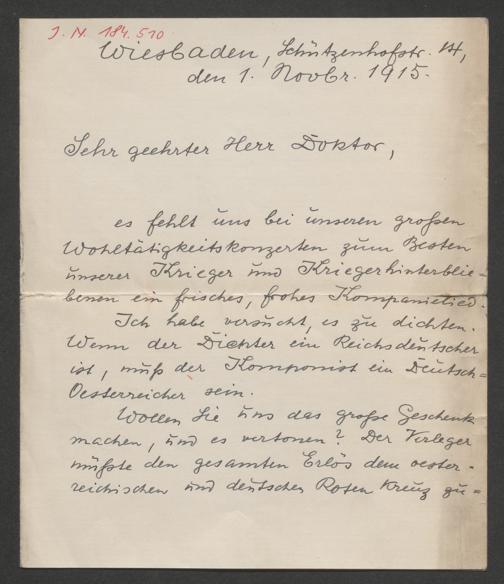 I. N. 184.510
Wiesbaden, Schützenhofstr. 14,
den 1. Novbr. 1915.
Sehr geehrter Herr Doktor,
es fehlt uns bei unseren großen
Wohltätigkeitskonzerten zum Besten
unserer Krieger und Kriegerhinterblie-
benen ein frisches, frohes Kompanielied.
Ich habe versucht, es zu dichten.
Wenn der Dichter ein Reichsdeutscher
ist, muß der Komponist ein Deutsch-
Oesterreicher sein.
Wollen Sie uns das große Geschenk
machen, und es vertonen? Der Verleger
müßte den gesamten Erlös dem oester-
reichischen und deutschen Roten Kreuz zu=